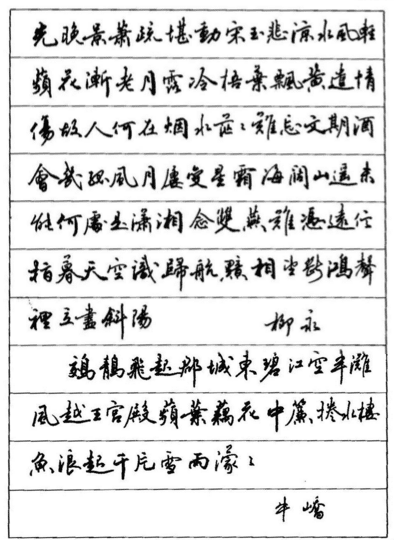 光晚景蕭疏堪動宋玉悲涼水風輕
蘋花漸老月露冷梧葉飄黃遣情
傷故人何在烟水茫〻難忘文期酒
會幾孤風月屢變星霜海闊山遥未
知何處是潇湘念雙燕難憑遠信
指暮天空識歸航黯相望斷鴻聲
裡立盡斜陽 柳永
鷓鴣飛起郡城東碧江空半灘
風越王宮殿蘋葉藕花中簾捲水樓
魚浪起千片雪雨濛〻
牛嶠